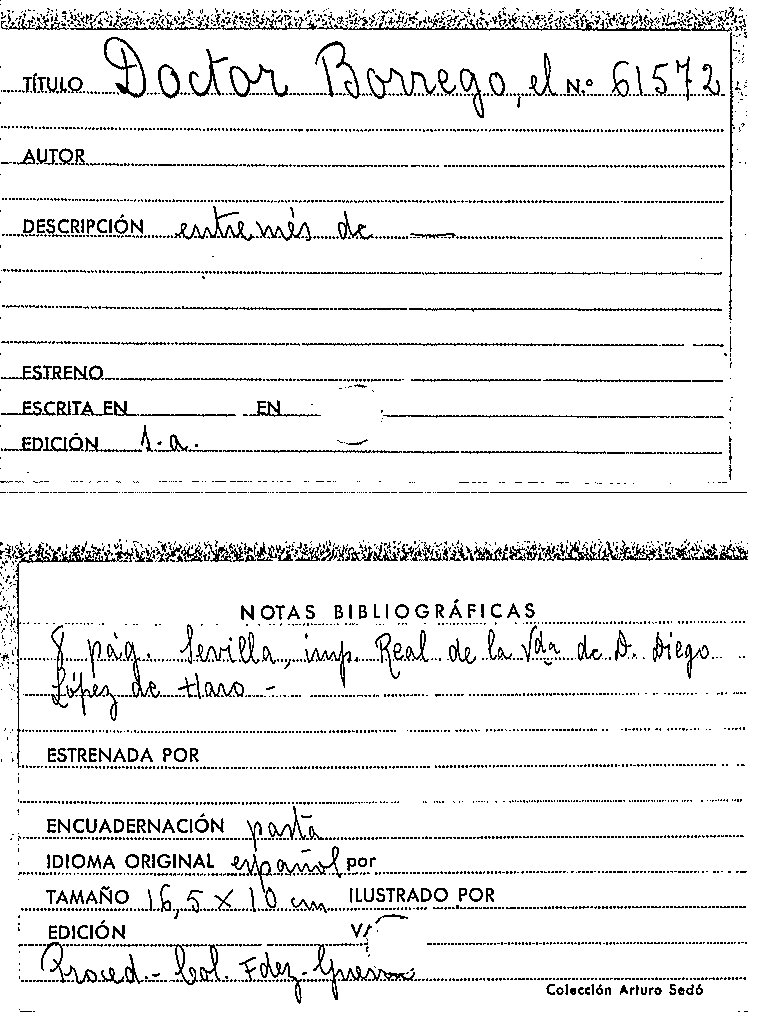 TÍTULO Doctor Borrego, el N.º 61572
AUTOR
DESCRIPCIÓN entremés de —
ESTRENO
ESCRITA EN EN
EDICIÓN s.a.
NOTAS BIBLIOGRÁFICAS
8 pág. Sevilla, imp. Real de la Vda de D. Diego
López de Haro -
ESTRENADA POR
ENCUADERNACIÓN pasta
IDIOMA ORIGINAL español por
TAMAÑO 16,5 X 10 cm ILUSTRADO POR
EDICIÓN V/
Proced.- Col. Fdez-Guerra
Colección Arturo Sedó